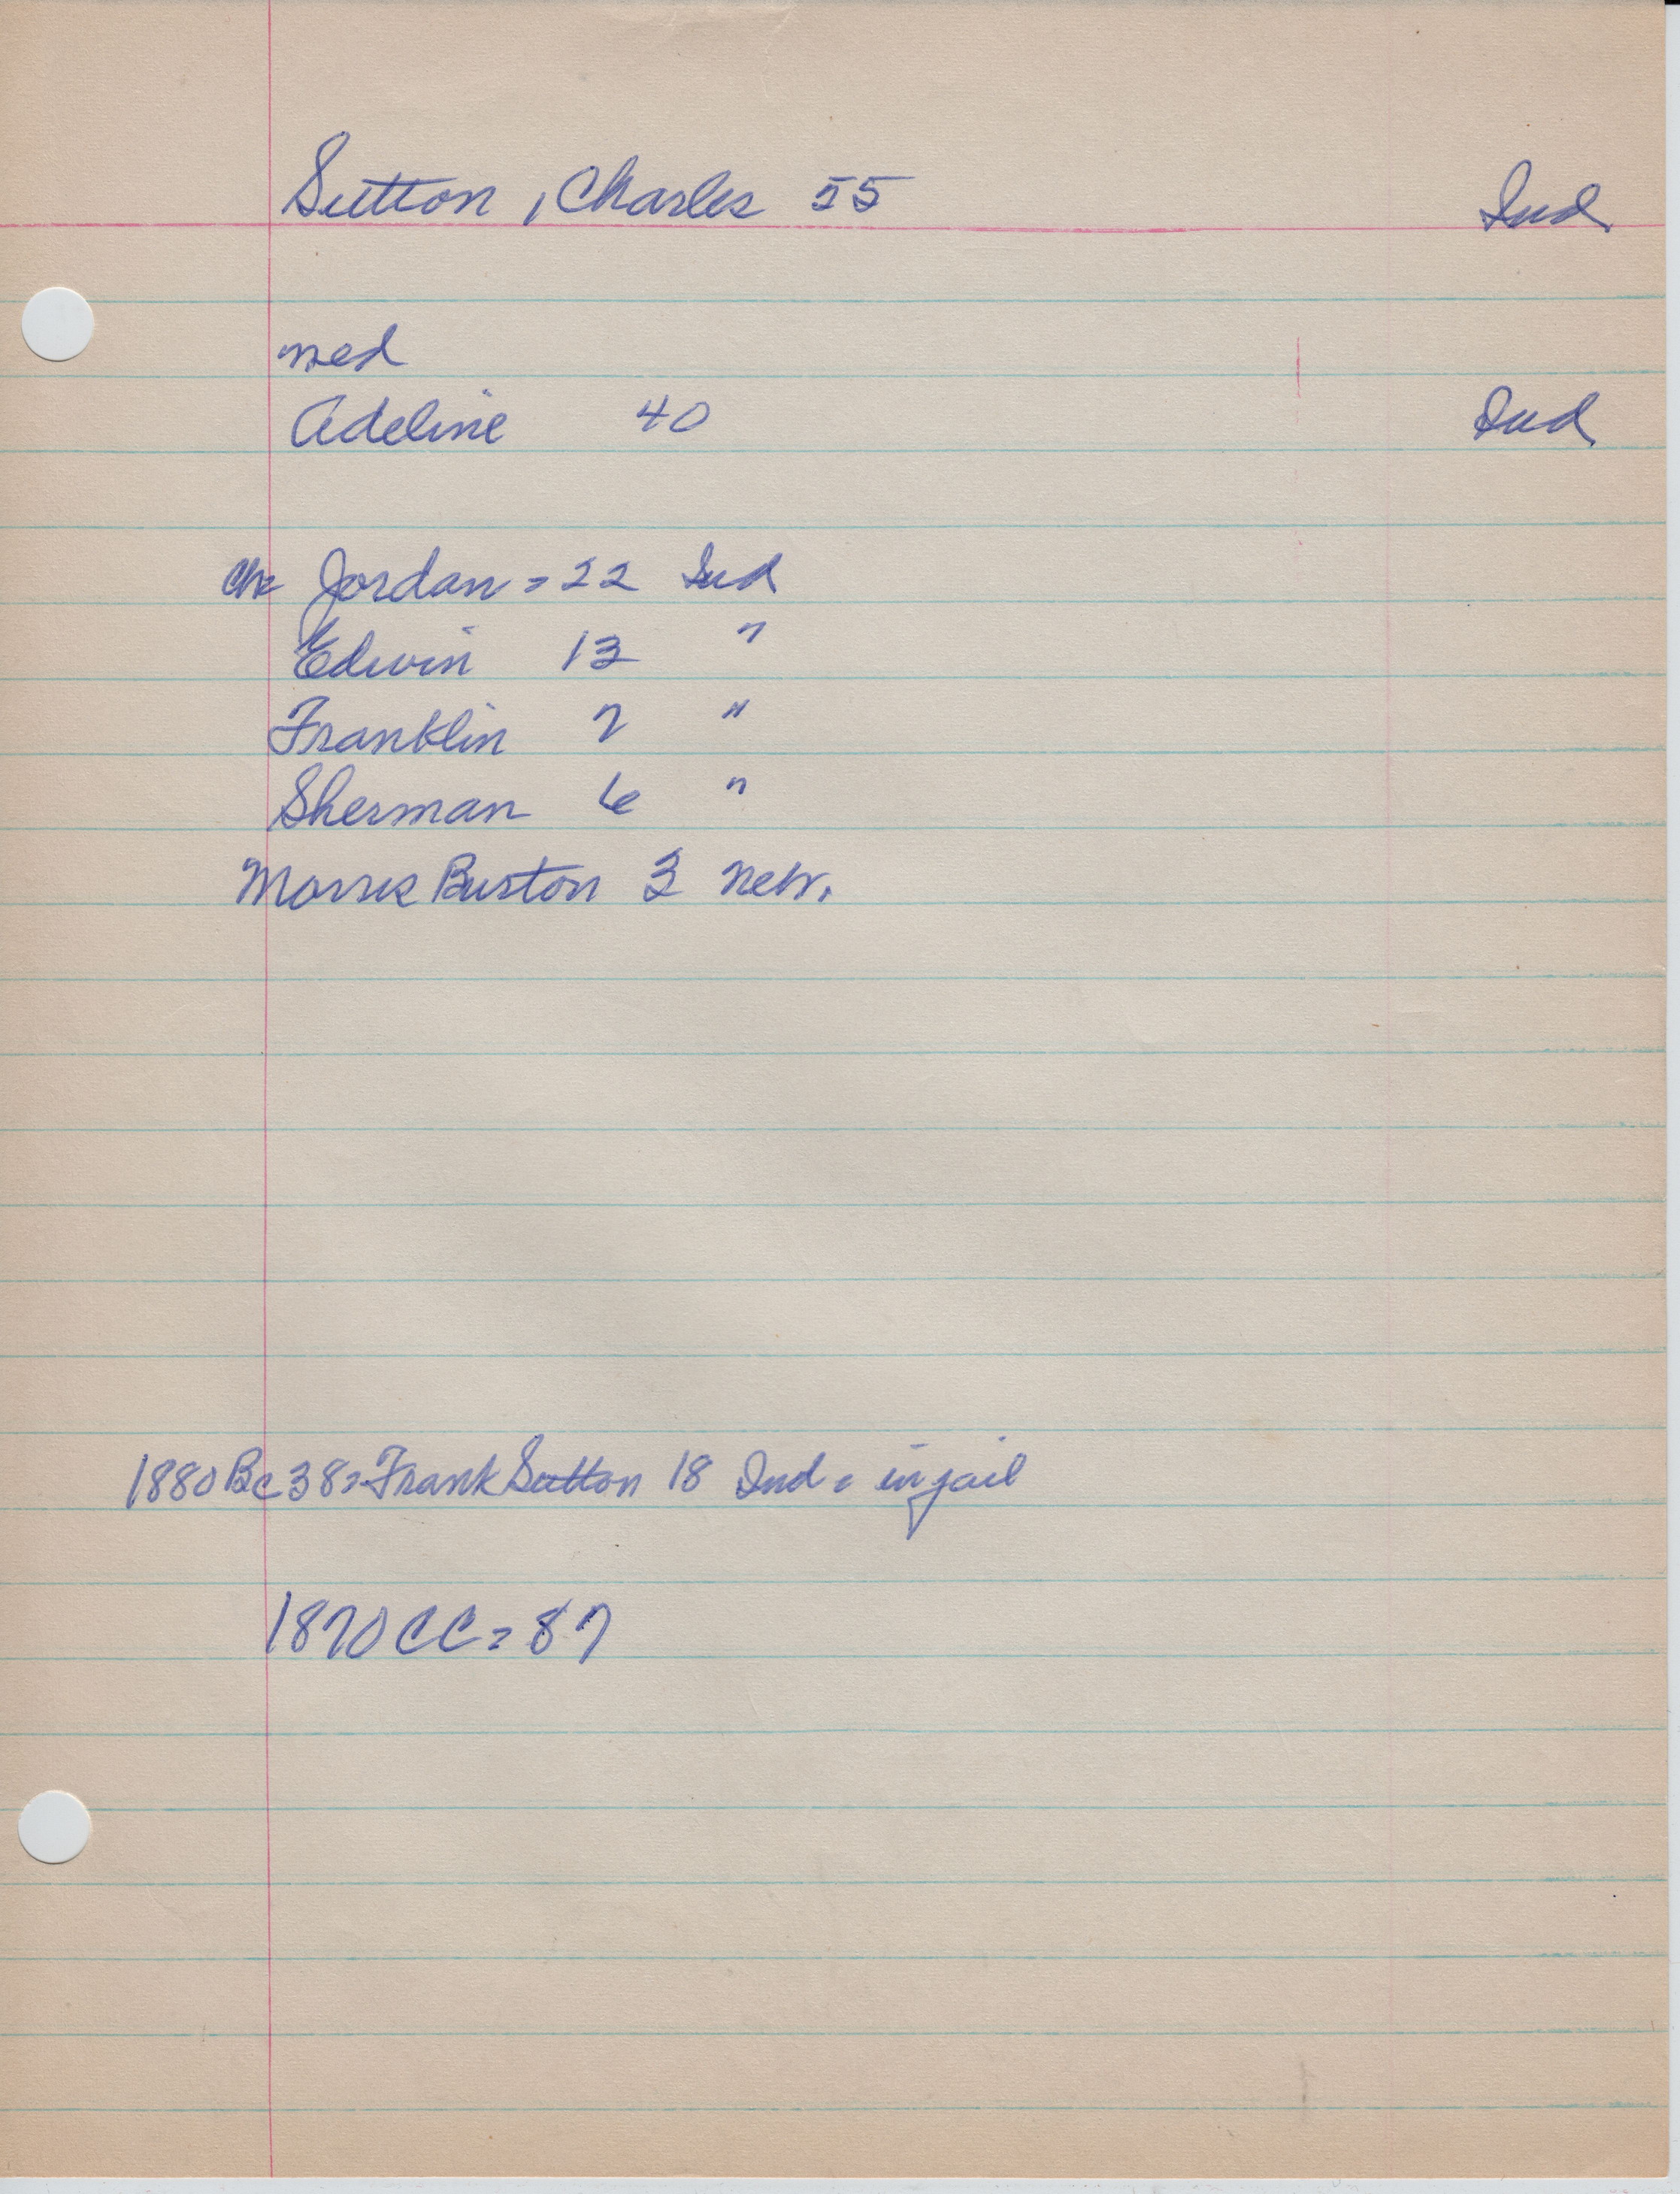 Sutton, Charles 55 Ind
med
Adeline 40 Ind
ch= Jordan = 22 Ind
Edwin 13 "
Franklin 7 "
Sherman 6 "
Morris Burton 3 Nebr.
1880 Bc 38 = Frank Sutton 18 Ind = in jail
1870 CC = 87